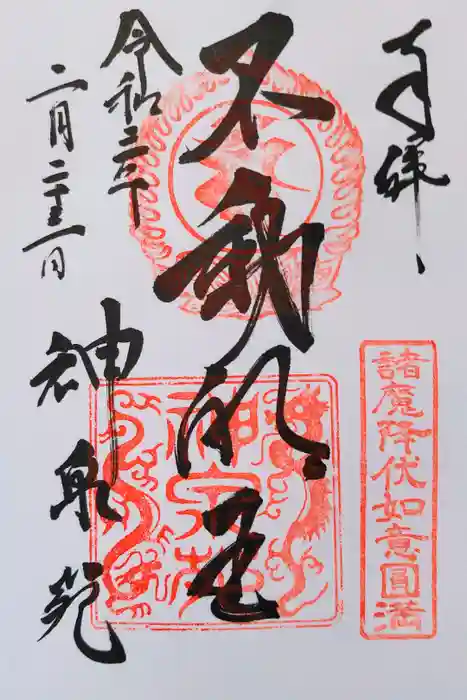 奉拝
諸魔降伏如意圓満
不動明王
神泉苑
令和二年
二月二十一日
神泉苑